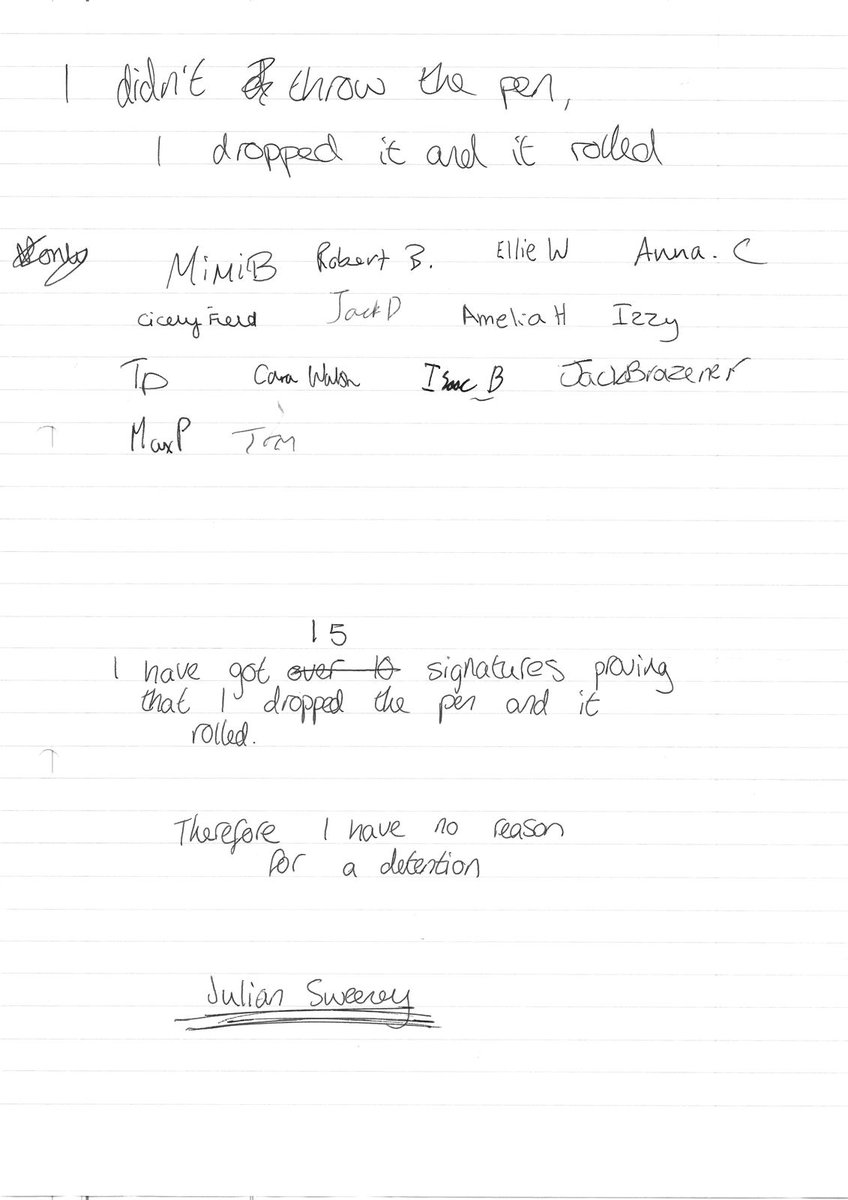 I didn't throw the pen,
I dropped it and it rolled
MiMiB Robert B. Ellie W Anna. C
Cicely Field JackD Amelia H Izzy
TD Cara Walsh Isaac B JackBrazener
MaxP Tom
15
I have got over 10 signatures proving
that I dropped the pen and it
rolled.
Therefore I have no reason
for a detention
Julian Sweeney